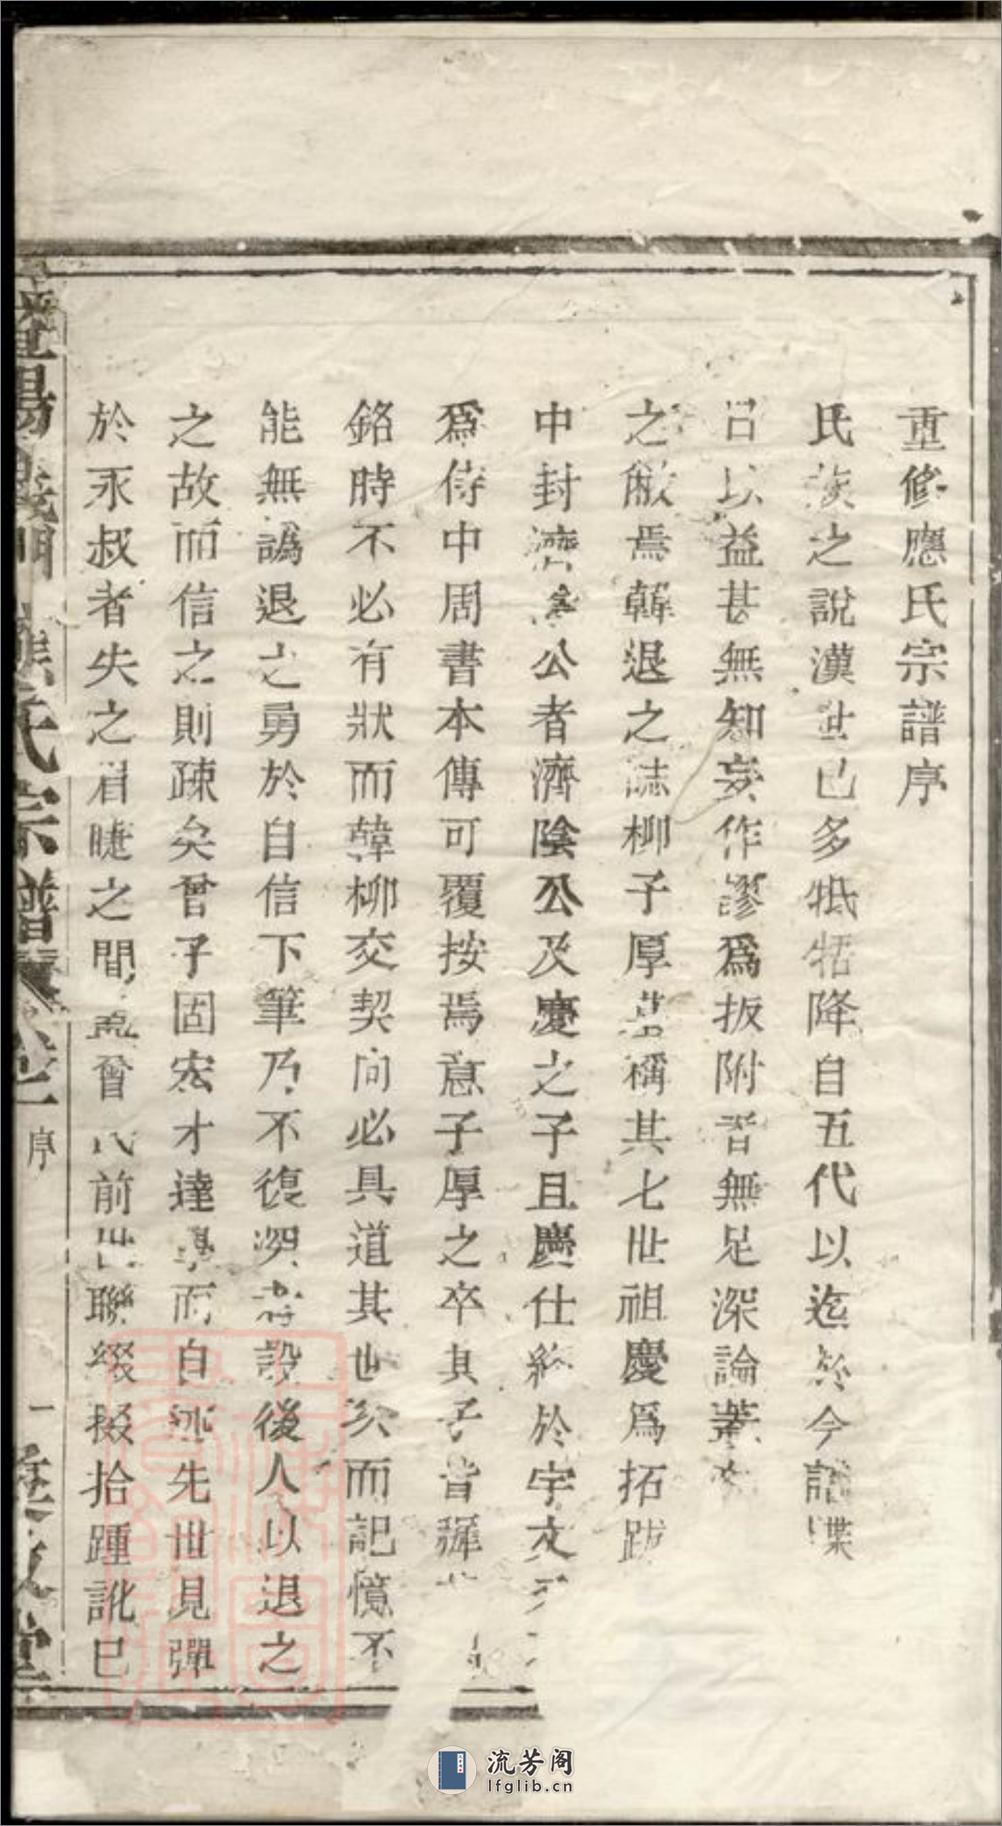 重修應氏宗譜序
氏族之說漢世已多牴牾降自五代以迄於今譜牒
日以益甚無知妄作謬爲扳附者無足深論叢
之敝焉韓退之誌柳子厚墓稱其七世祖慶爲拓跋
中封濟陰公者濟陰公及慶之子且慶仕終於宇文
爲侍中周書本傳可覆按焉意子厚之卒其子皆穉
銘時不必有狀而韓柳交契向必具道其世次而記憶不
能無譌退之勇於自信下筆乃不復深考設後人以退之
之故而信之則疎矣曾子固宏才達學而自述先世見彈
於永叔者失之眉睫之間孟曾氏前世聯綴掇拾踵訛已
暨陽 門應氏宗譜 卷一 序 一
堂
流芳阁
lfglib.cn